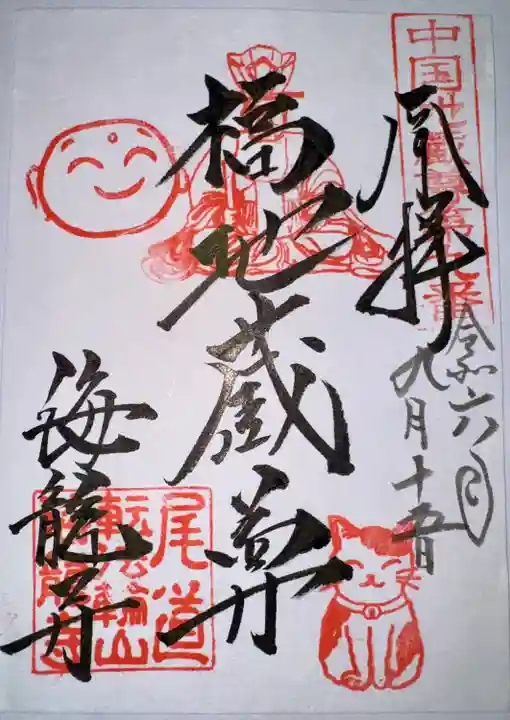 奉拝
中国地蔵尊第七番
令和六年
九月十五日
橋地蔵尊
海龍寺
尾道
転法輪山
海龍寺